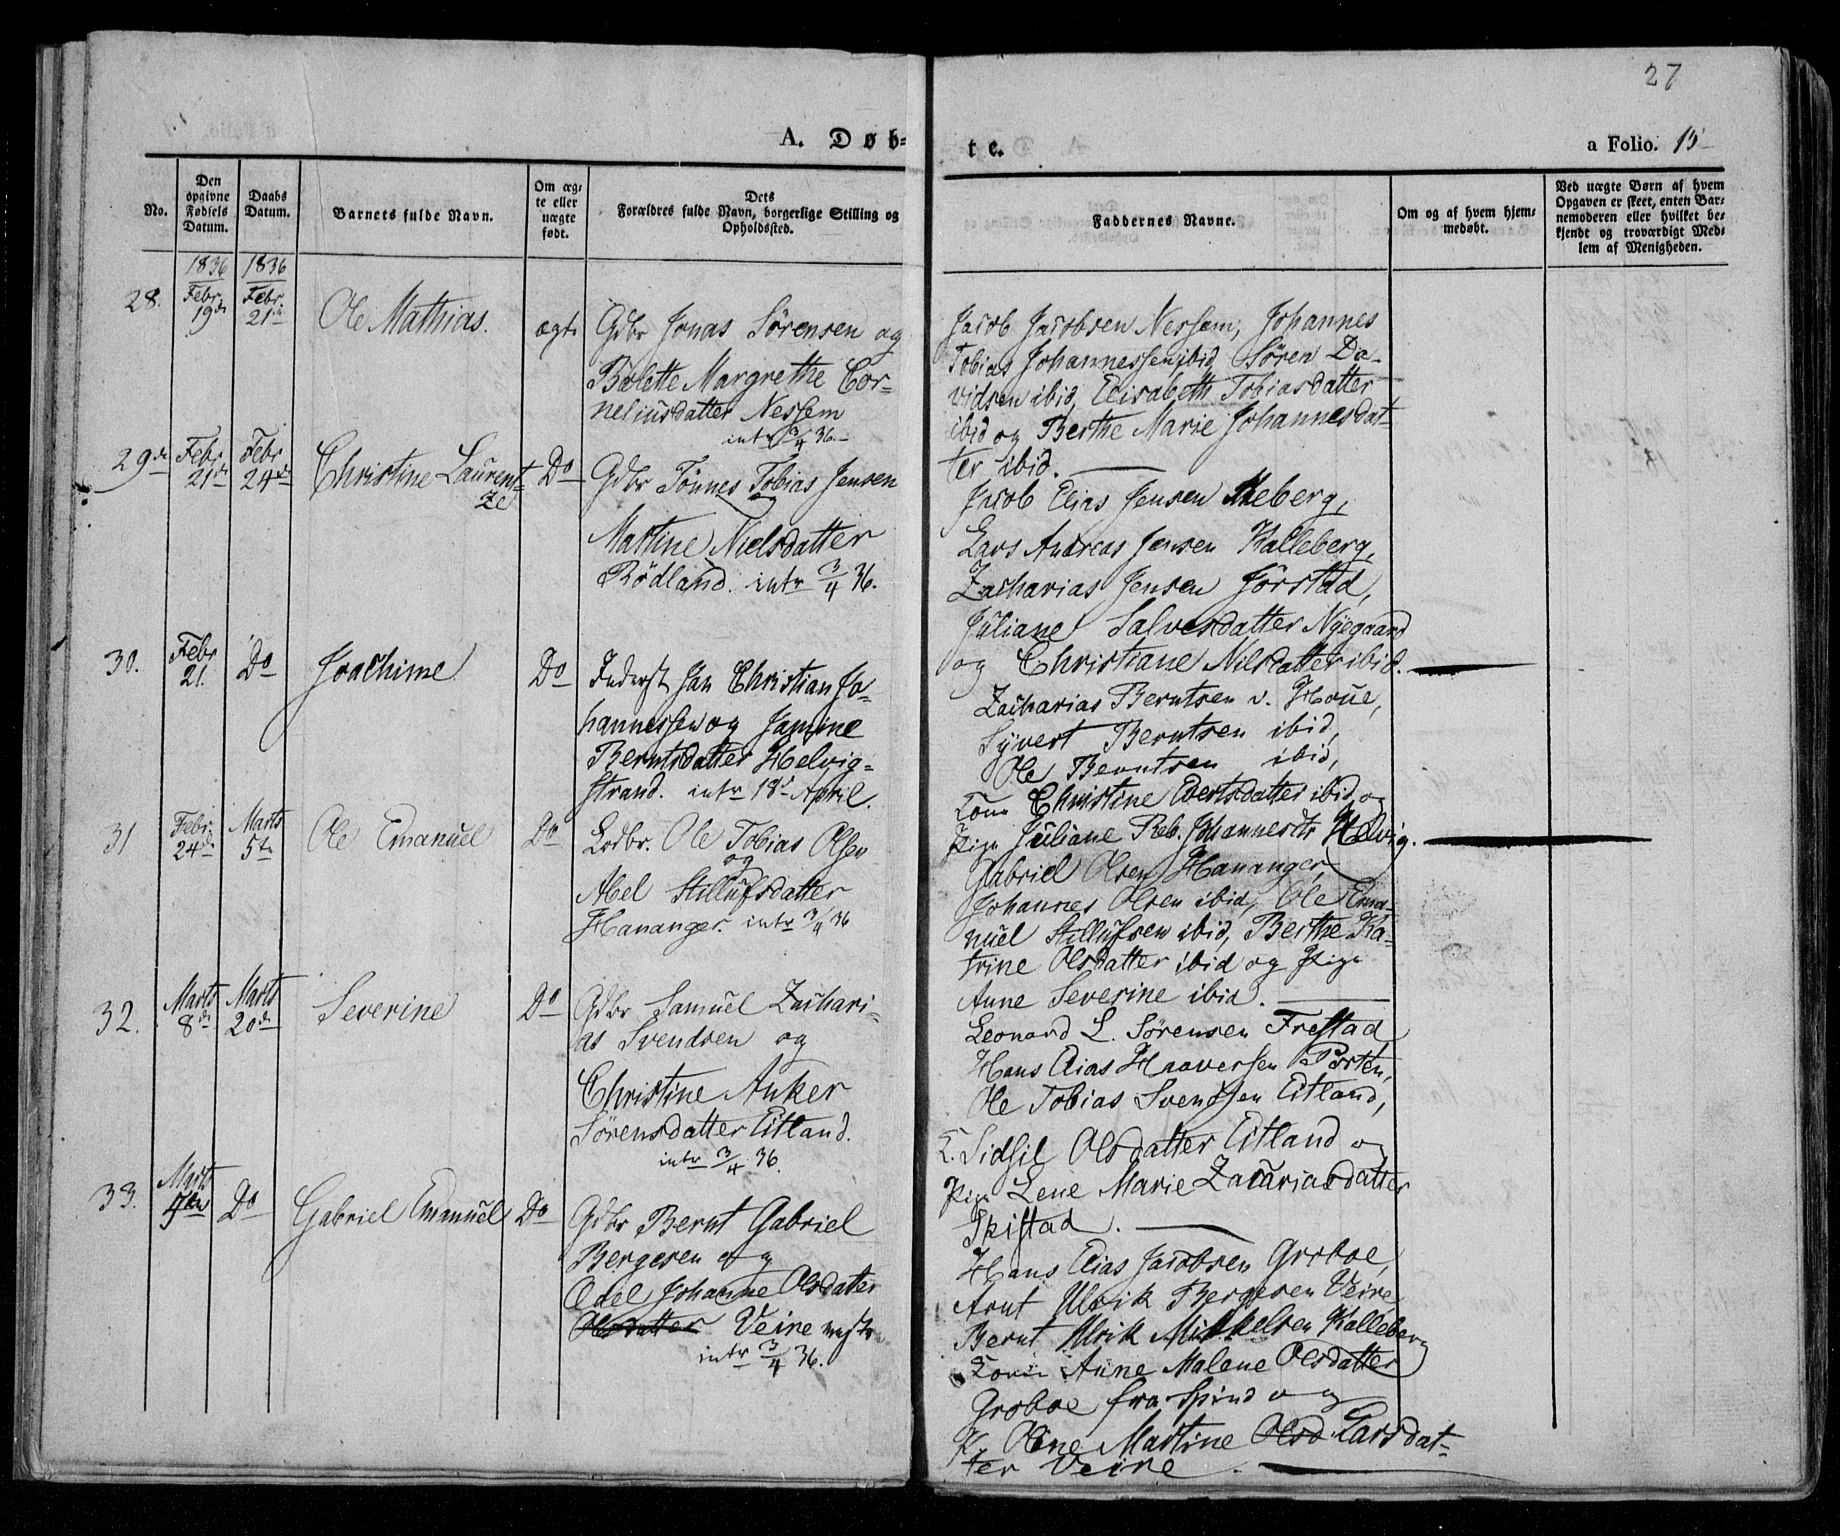 27
A. Døb-
te.
a Folio. 15
No.
Den opgivne Fødsels Datum.
Daabs Datum.
Barnets fulde Navn.
Om ægte eller uægte født.
Dets Forældres fulde Navn, borgerlige Stilling og Opholdssted.
Faddernes Navne.
Om og af hvem hjemmedøbt.
Ved uægte Børn af hvem Opgaven er skeet, enten Barnemoderen eller hvilket bekjendt og troværdigt Medlem af Menigheden.
1836 1836
28. Febr. 19de Febr. 21de Ole Mathias. ægte
Gdbr Jonas Sörensen og
Bolette Margrethe Cor=
neliusdatter Nessem
intr 3/4 36.
Jacob Jacobsen Nessem, Johannes
Tobias Johannessen ibid, Sören Da-
vidsen ibid, Elisabeth Tobiasdatter
ibid og Berthe Marie Johannesdat-
ter ibid.
29de Febr 21de Febr 24de Christine Laurent-
ze Do
Gdbr Tönnes Tobias Jensen
Martine Nielsdatter
Rödland. intr 3/4 36.
Jacob Elias Jensen Meberg,
Lars Andreas Jensen Kalleberg,
Zacharias Jensen Jörstad,
Juliane Salvesdatter Nyegaard
og Christiane Nilsdatter ibid.
30. Febr 21. Do Joachime Do
Inderst Jan Christian Jo-
hannessen og Jamine
Berntsdatter Helvig=
strand. intr 18de April.
Zacharias Berntsen v. Houe,
Syvert Berntsen ibid,
Ole Berntsen ibid,
Kone Christine Evertsdatter ibid og
Pige Juliane Reb. Johannesdtr Helvig.
31 Febr. 24de Marts 5te Ole Emanuel Do
Ledbr. Ole Tobias Olsen
og
Abel Stillufsdatter
Hananger. intr 3/4 36
Gabriel Olsen Hananger,
Johannes Olsen ibid, Ole Ema-
nuel Stillufsen ibid, Berthe Ka-
trine Olsdatter ibid og Pige
Anne Severine ibid.
32. Marts 8de Marts 20de Severine Do
Gdbr Samuel Zachari-
as Svendsen og
Christine Anker
Sörensdatter Eitland.
intr 3/4 36.
Leonard L. Sörensen Frestad
Hans Elias Haaversen Porten,
Ole Tobias Svendsen Eitland,
K. Sidsil Olsdatter Eitland og
Pige Lene Marie Zacariasdatter
Skistad.
33. Marts Do Gabriel Emanuel Do
Gdbr Bernt Gabriel
Bergesen og
Johanne Olsdatter
Olsdatter Veire
intr 3/4 36.
Hans Elias Jacobsen Groboe,
Arnt Ulrik Bergesen Veire
Bernt Ulrik Mikkelsen Kalleberg
Kone Anne Malene Olsdatter
Groboe fra Spind og
P. Oline Martine Olsd Larsdat-
ter Veire.